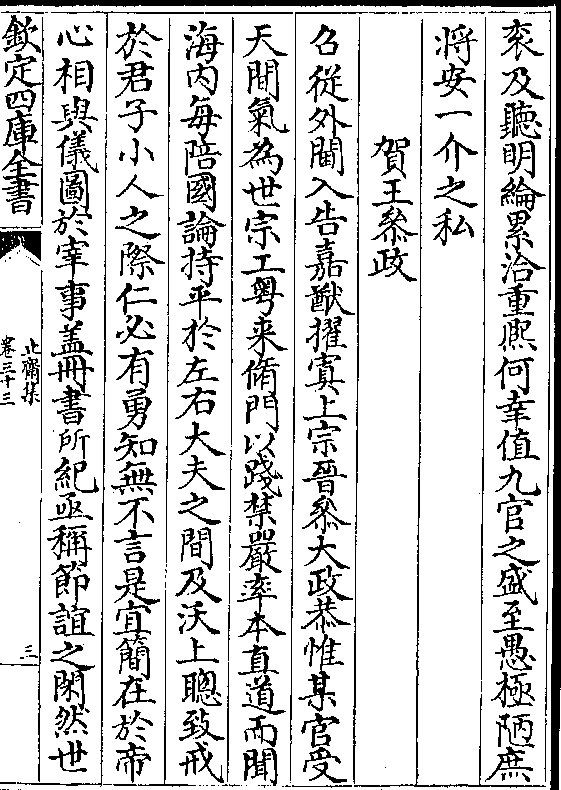 衮及聽明綸累洽重熈何幸值九官之盛至愚極陋庶
將安一介之私
賀王叅政
召從外閫入告嘉猷擢寘上宗晉叅大政恭惟某官受
天間氣為世宗工粤来脩門以踐禁嚴率本直道而聞
海内每陪國論持平於左右大夫之間及沃上聰致戒
於君子小人之際仁必有勇知無不言是宜簡在於帝
心相與儀圖於宰事盖冊書所紀亟稱節誼之閑然世
欽定四庫全書
止齋集
卷三十三
三